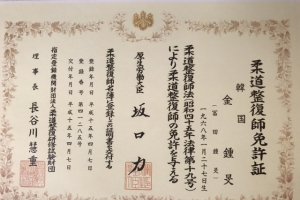 柔道整復師免許証
韓国
金鍾旻
(冨田鍾旻)
一九六八年一月二十七日生
柔道整復師法(昭和四十五年法律第十九号)
により柔道整復師の免許を与える
厚生労働大臣 坂口力
柔道整復師名簿に登録しこの証書を交付する
登録年月日 平成十五年四月七日
登録番号
交付年月日 平成十五年四月七日
指定登録機関財団法人柔道整復研修試験財団
理事長 長谷川慧重